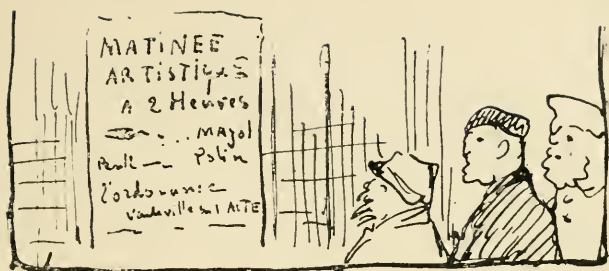 MATINEE
ARTISTIQUE
A 2 Heures
... MAyol
Polin
l'ordonnance
Vaudeville en 1 ACTE